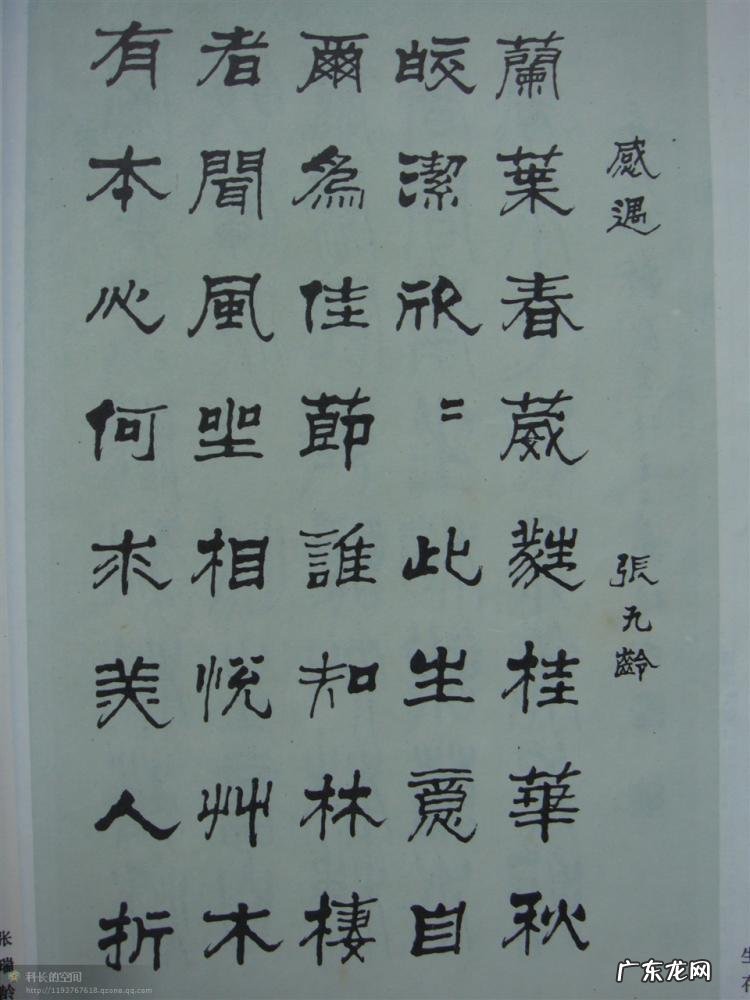 感遇 張九齡
蘭葉春葳蕤桂華秋
皎潔欣〻此生意自
爾為佳節誰知林棲
者聞風坐相悅艸木
有本心何求美人折
张瑞龄
科长的空间
http://1193767618.qzone.qq.com
广东龙网